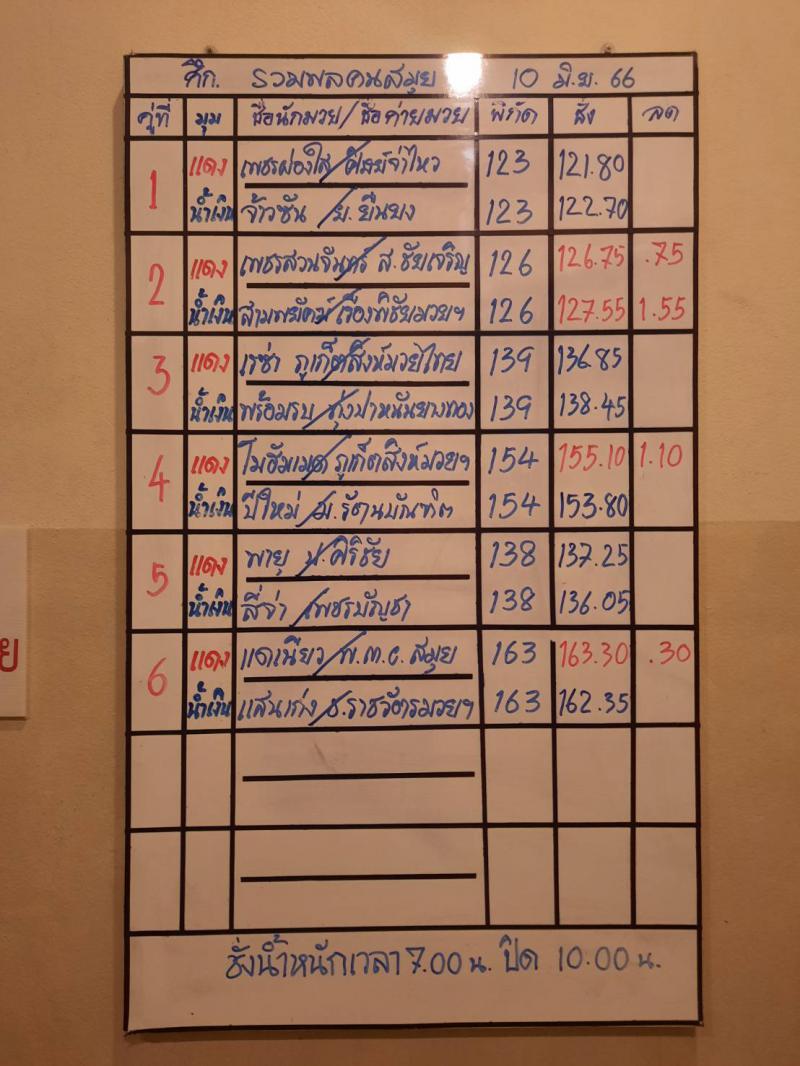 ศึก. รวมพลคนสมุย 10 มิ.ย. 66
คู่ที่ มุม ชื่อนักมวย/ชื่อค่ายมวย พิกัด ชั่ง ลด
1 แดง เพชรผ่องใส/ศิษย์จ่าไหว 123 121.80
น้ำเงิน จ้าวซัน/ย.ยืนยง 123 122.70
2 แดง เพชรสวนจันทร์ ส.ชัยเจริญ 126 126.75 .75
น้ำเงิน สามพยัคฆ์/เรืองพิชัยมวยฯ 126 127.55 1.55
3 แดง เรซ่า ภูเก็ตสิงห์มวยไทย 139 136.85
น้ำเงิน พร้อมรบ/ทุ่งปาหนันยางทอง 139 138.45
4 แดง โมฮัมเมด/ภูเก็ตสิงห์มวยฯ 154 155.10 1.10
น้ำเงิน ปีใหม่/ม.รัตนบัณฑิต 154 153.80
5 แดง พายุ น.ศิริชัย 138 137.25
น้ำเงิน สี่จ่า/เพชรบัญชา 138 136.05
6 แดง แดเนียว/พ.ท.อ.สมุย 163 163.30 .30
น้ำเงิน แสนเก่ง/ช.ราชวัตรมวยฯ 163 162.35
ชั่งน้ำหนักเวลา 7.00 น. ปิด 10.00 น.
ย